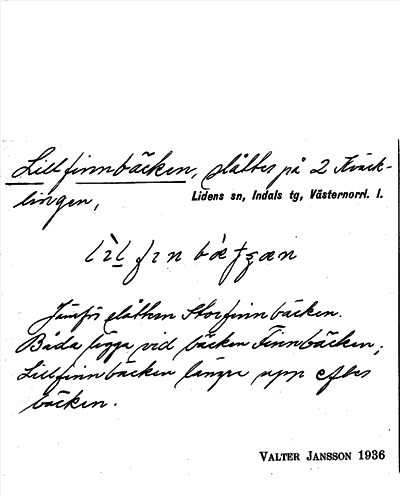 Lillfinnbäcken, slåttes på 2 Kväck-
lingen,
Lidens sn, Indals tg, Västernorrl. l.
Jämför slåtten Storfinnbäcken.
Båda ligga vid bäcken Finnbäcken;
Lillfinnbäcken längre upp efter
bäcken.
VALTER JANSSON 1936